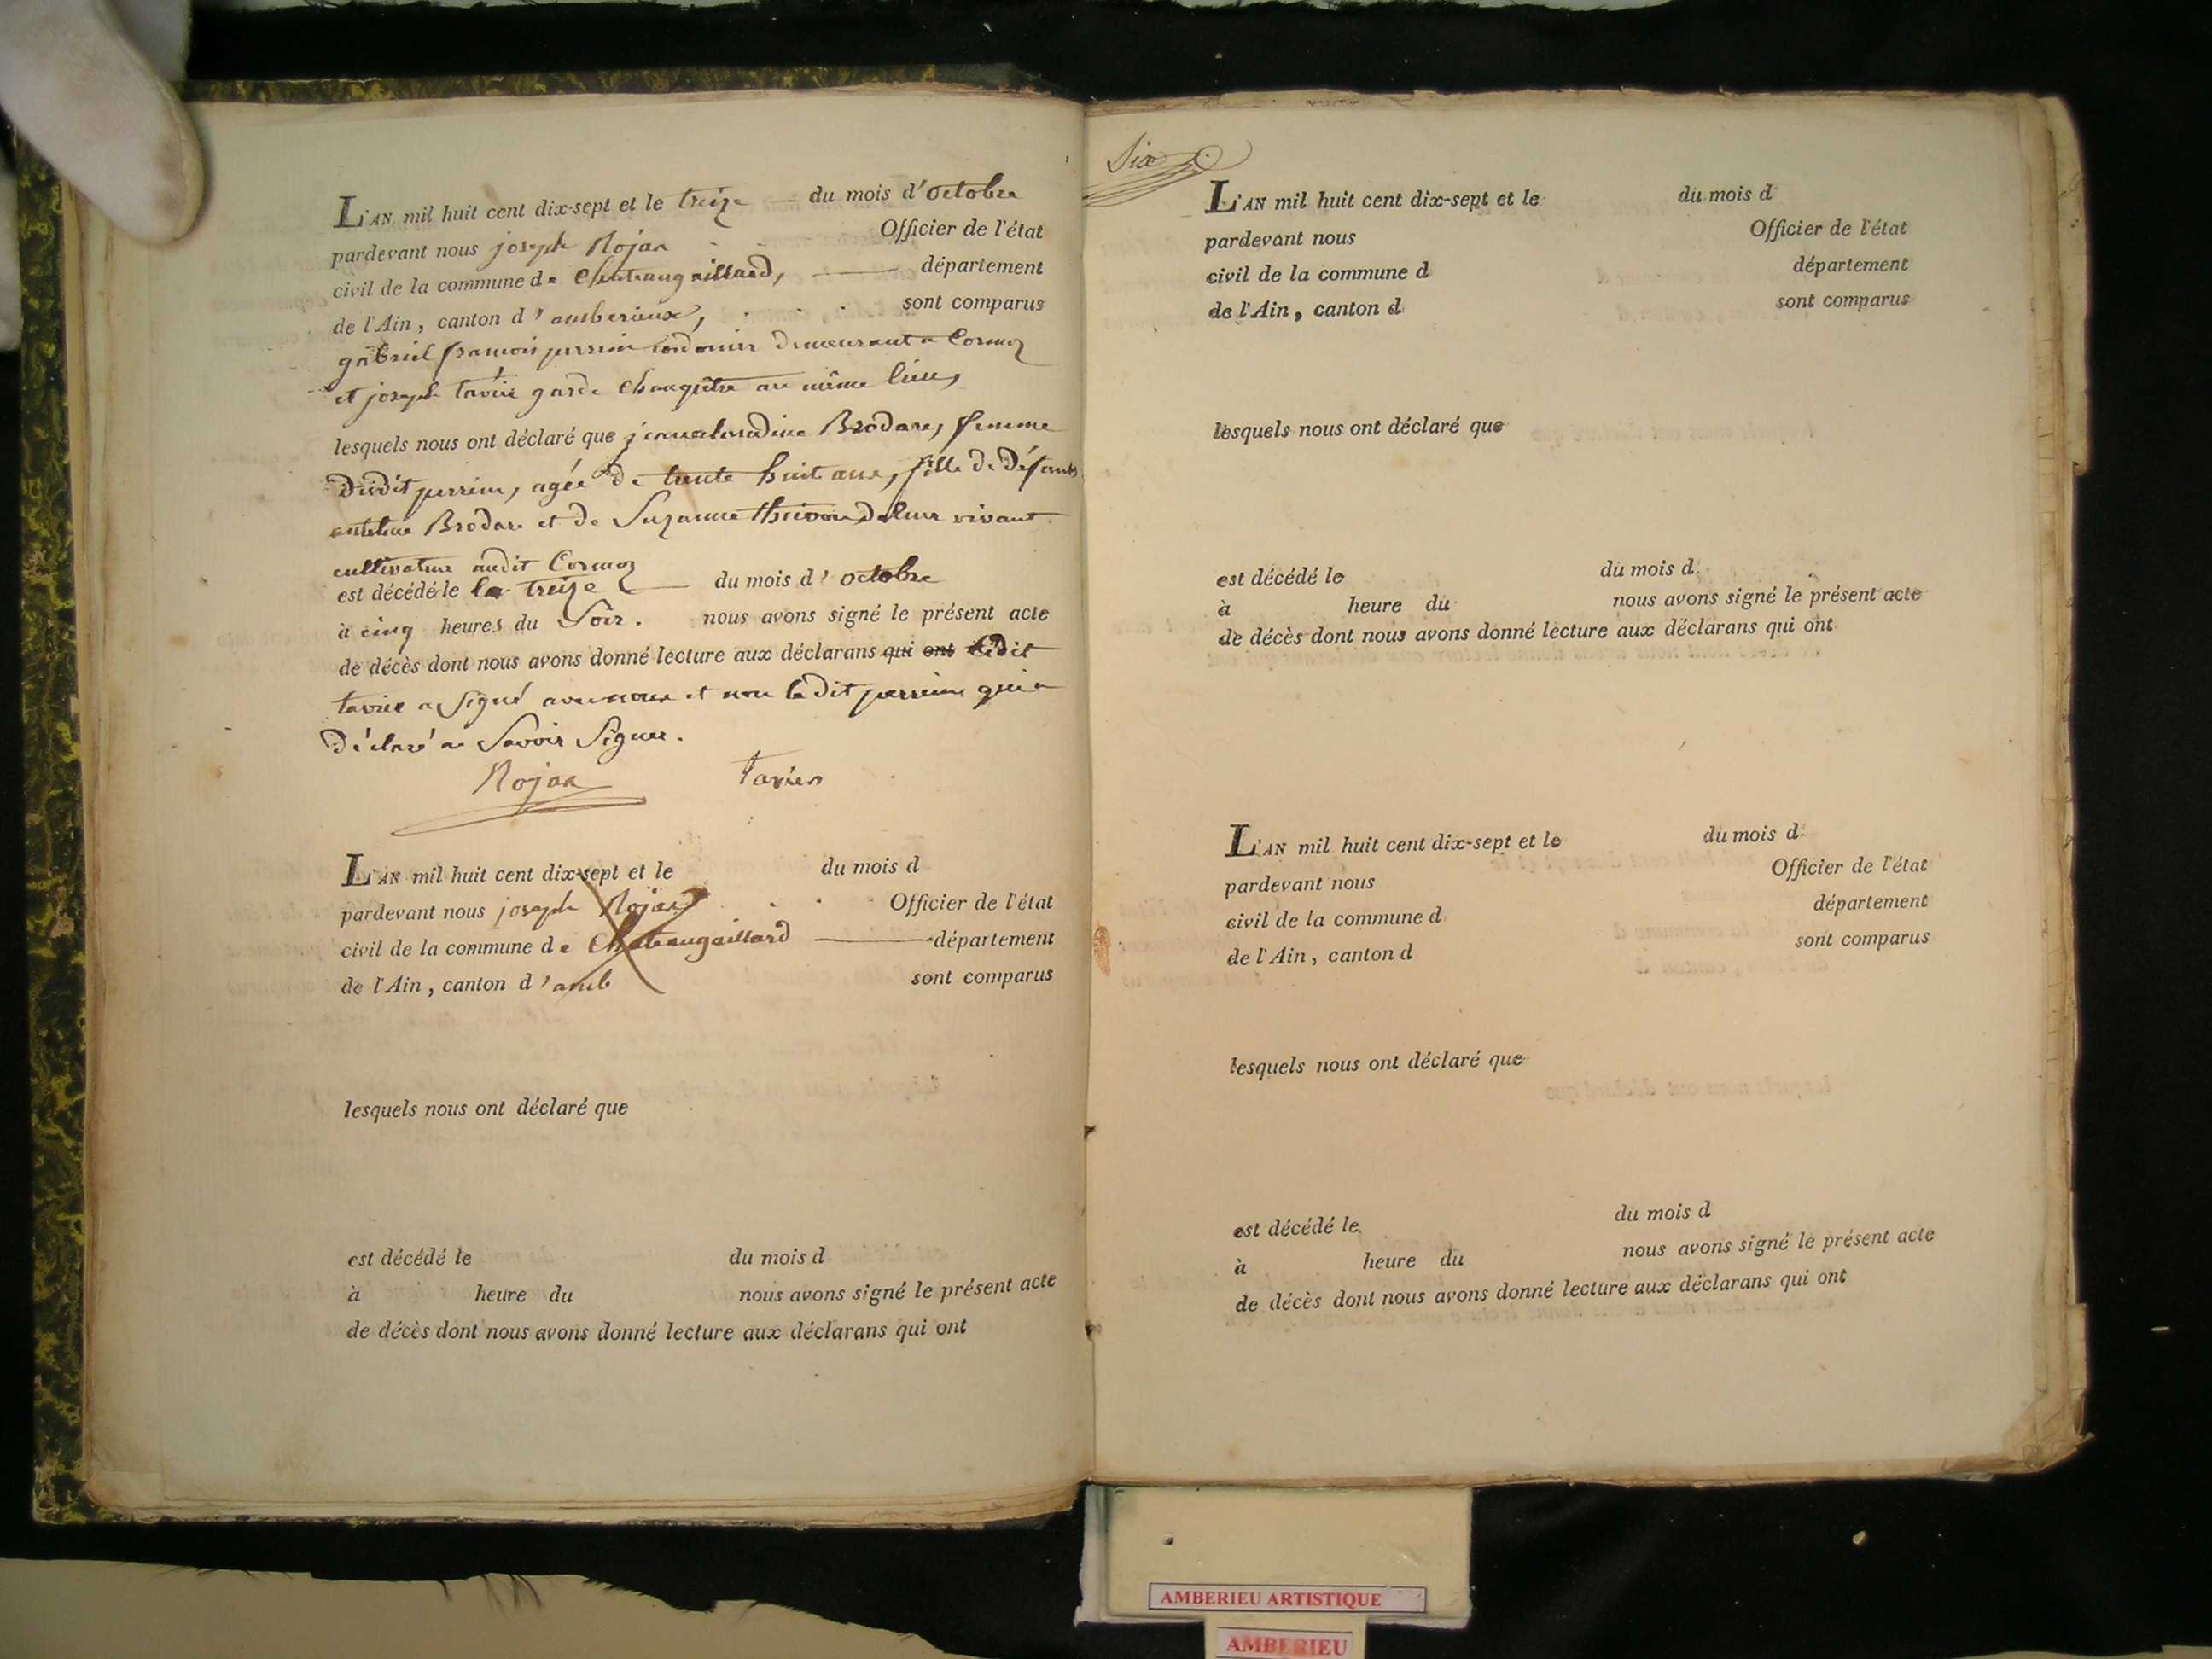 L'AN mil huit cent dix-sept et le treize du mois d'octobre
pardevant nous joseph Rojar Officier de l'état
civil de la commune de Chateaugaillard, département
de l'Ain, canton d'amberieux, sont comparus
gabriel francois perrin cordonier demeurant a Cormoz
et joseph tavier garde champêtre au même lieu,
lesquels nous ont déclaré que jeanne claudine Brodare, femme
dudit perrin, agée de trente huit ans, fille de défunts
antelme Brodare et de Suzanne de leur vivant
cultivateurs audit Cormoz
est décédé le treize du mois d'octobre
à cinq heures du Soir. nous avons signé le présent acte
de décès dont nous avons donné lecture aux déclarans qui ont ledit
tavier a Signé avec nous et non le dit perrin qui a
déclaré ne Savoir Signer.
Rojar tavier
L'AN mil huit cent dix-sept et le du mois d
pardevant nous joseph Rojar Officier de l'état
civil de la commune de Chateaugaillard département
de l'Ain, canton d'amb sont comparus
lesquels nous ont déclaré que
est décédé le du mois d
à heure du nous avons signé le présent acte
de décès dont nous avons donné lecture aux déclarans qui ont
Six
L'AN mil huit cent dix-sept et le du mois d
pardevant nous Officier de l'état
civil de la commune d département
de l'Ain, canton d sont comparus
lesquels nous ont déclaré que
est décédé le du mois d
à heure du nous avons signé le présent acte
de décès dont nous avons donné lecture aux déclarans qui ont
L'AN mil huit cent dix-sept et le du mois d
pardevant nous Officier de l'état
civil de la commune d département
de l'Ain, canton d sont comparus
lesquels nous ont déclaré que
est décédé le du mois d
à heure du nous avons signé le présent acte
de décès dont nous avons donné lecture aux déclarans qui ont
AMBERIEU ARTISTIQUE
AMBERIEU